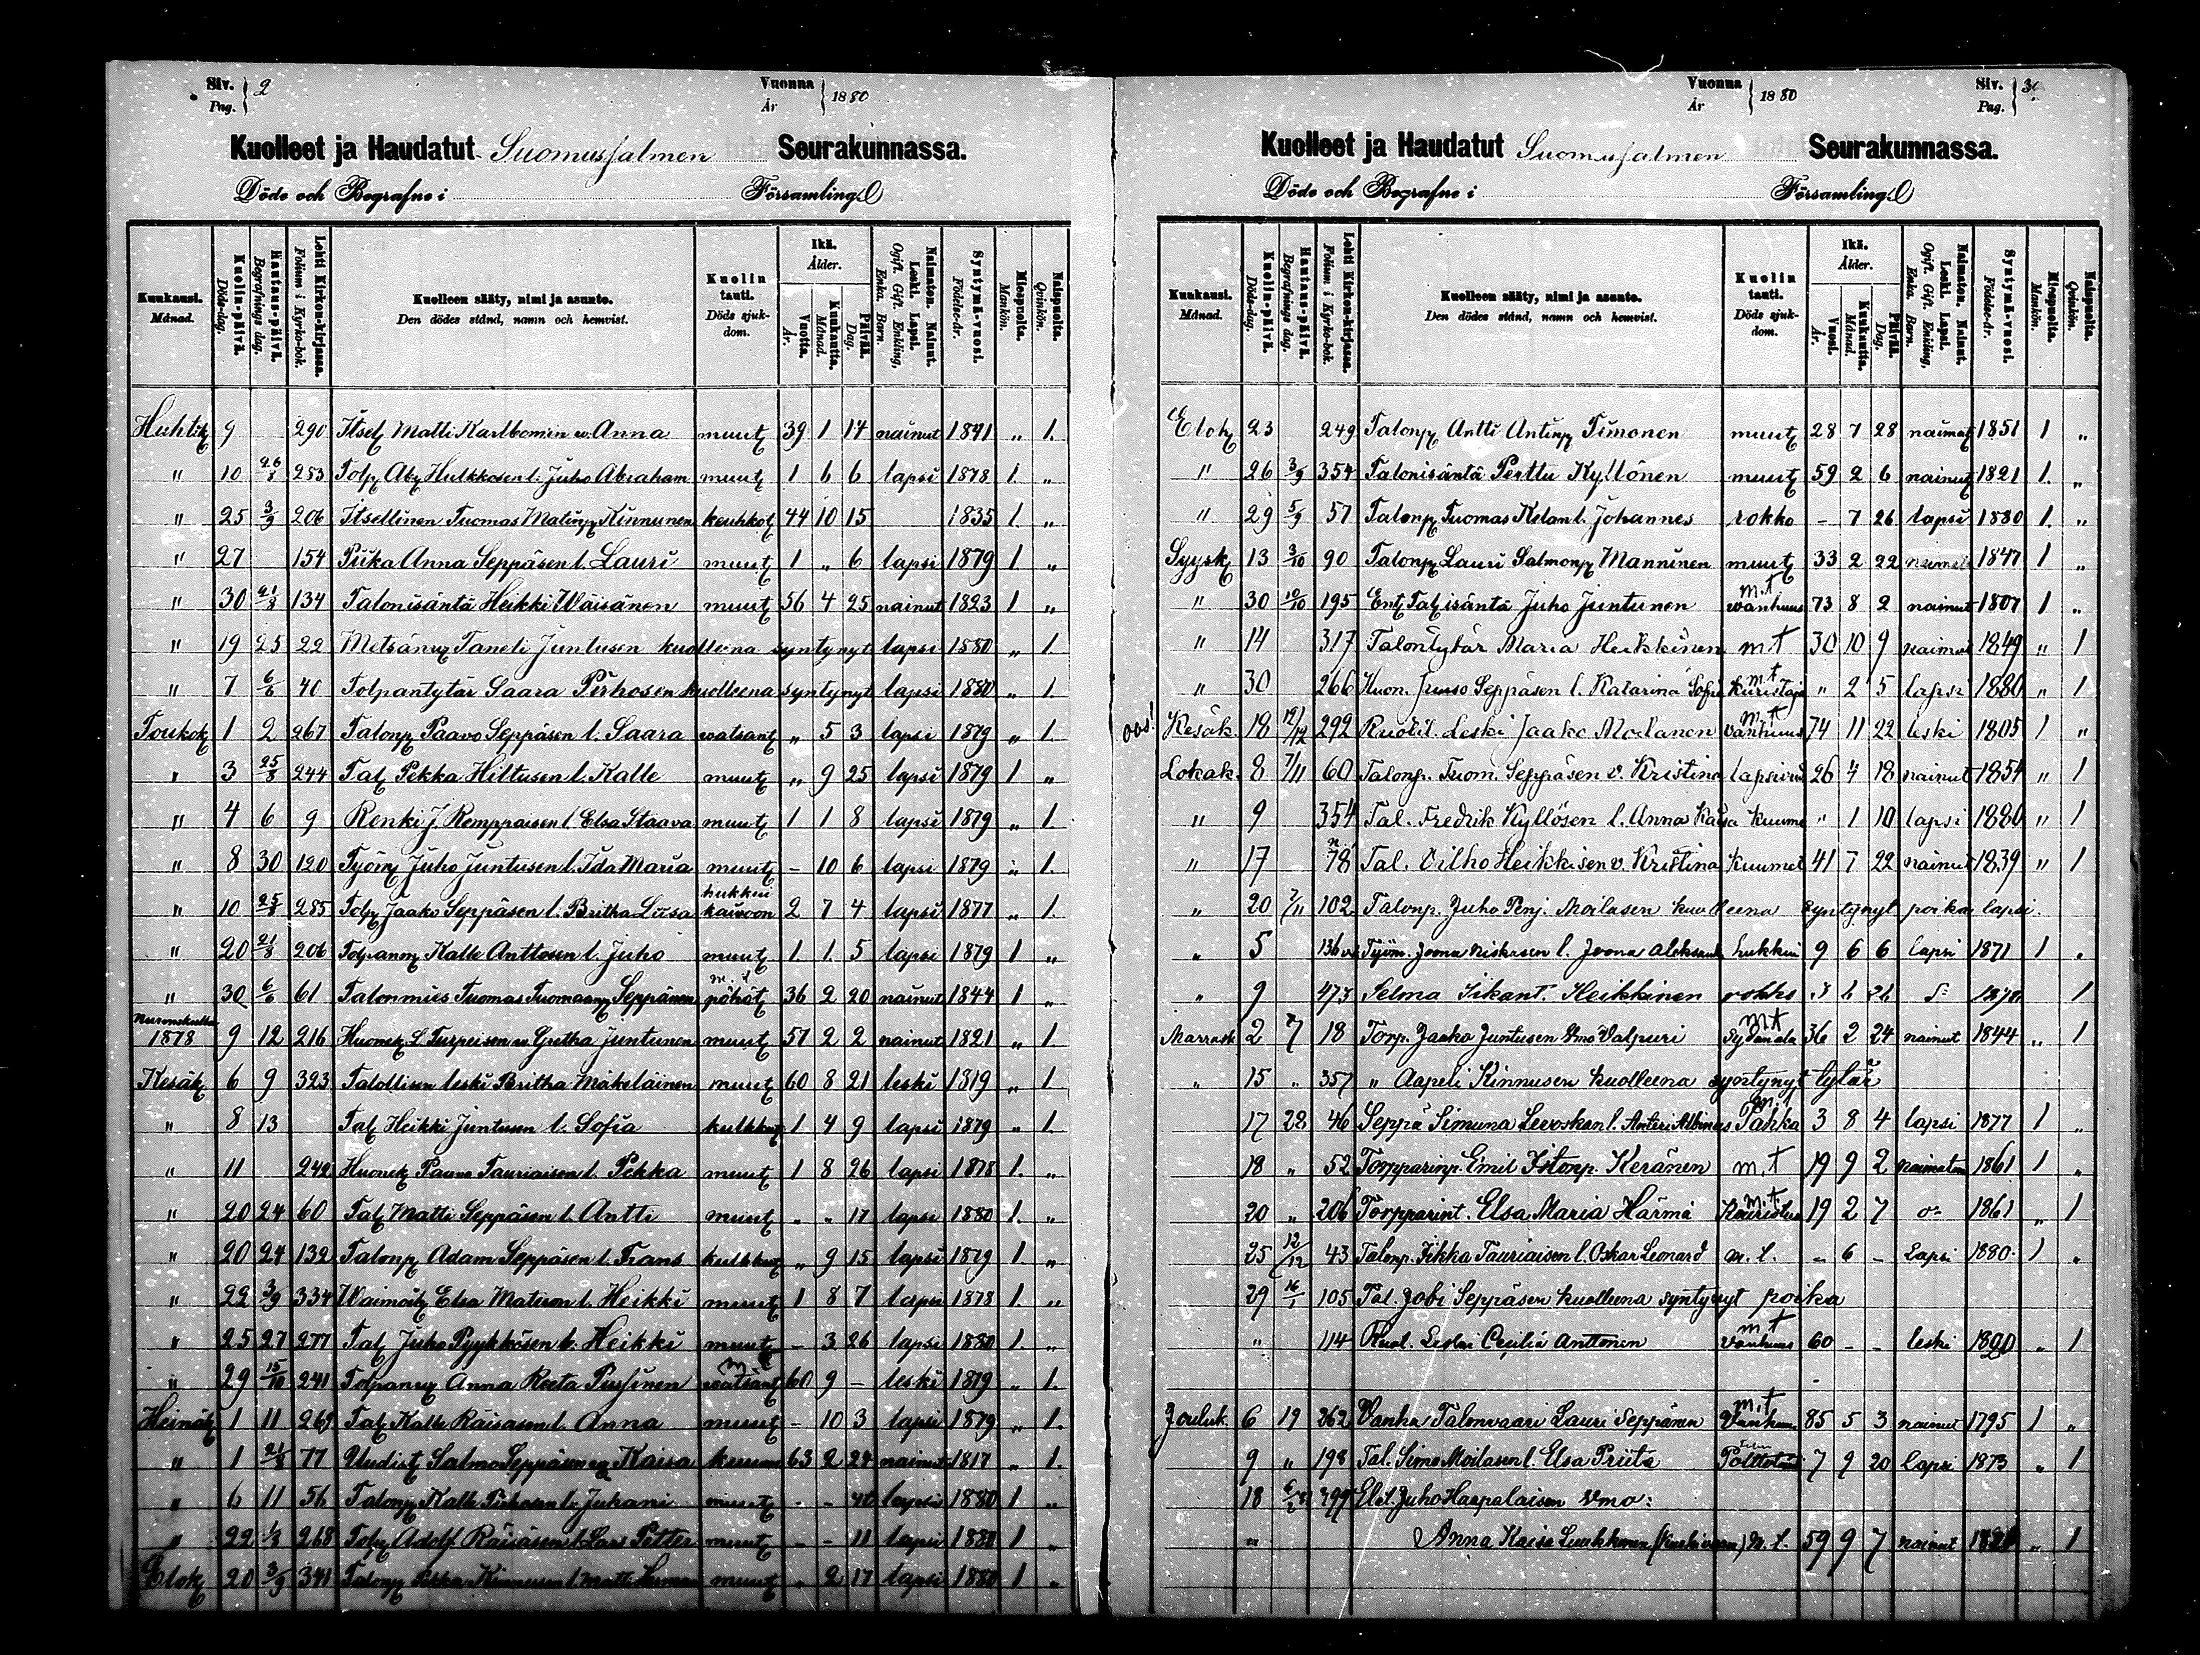 Siv. Pag. 2
Vuonna År 1880
Kuolleet ja Haudatut Suomussalmen Seurakunnassa.
Döde och Begrafne i Församling.
Kuukausi. Månad.
Kuolin-päivä. Döds-dag.
Hautaus-päivä. Begrafnings dag.
Lehti Kirkon-kirjassa. Folium i Kyrko-bok.
Kuolleen sääty, nimi ja asunto. Den dödes stånd, namn och hemvist.
Kuolin tauti. Döds sjukdom.
Ikä. Ålder.
Vuotta. År.
Kuukautta. Månad.
Päivää. Dag.
Naimaton. Nainut. Leski. Lapsi. Ogift. Gift. Enkling, Enka. Barn.
Syntymä-vuosi. Födelse-år.
Miespuolta. Mankön.
Naispuolta. Qvinkön.
Huhtik 9 290 Itsel Matti Karlbomin v. Anna muut 39 1 14 nainut 1841 „ 1.
" 10 26/8 283 Tolp Ab Hulkkosen l. Juho Abraham muut 1 6 6 lapsi 1878 1. „
" 25 3/9 206 Itsellinen Tuomas Matinp Kinnunen keuhkot 44 10 15 1835 1. „
" 27 154 Piika Anna Seppäsen l. Lauri muut 1 „ 6 lapsi 1879 1 „
" 30 21/8 134 Talonisäntä Heikki Wäisänen muut 56 4 25 nainut 1823 1 „
" 19 25 22 Metsänv Taneli Juntusen kuolleena syntynyt lapsi 1880 „ 1.
" 7 6/6 40 Tolpantytär Saara Pirhosen kuolleena syntynyt lapsi 1880 „ 1.
Toukok 1 2 267 Talonp Paavo Seppäsen l. Saara watsant „ 5 3 lapsi 1879 „ 1.
" 3 25/8 244 Tal Pekka Hiltusen l. Kalle muut „ 9 25 lapsi 1879 1 „
" 4 6 9 Renki J. Remppaisen l. Elsa Staava muut 1 1 8 lapsi 1879 „ 1.
" 8 30 120 Työm Juho Juntusen l. Ida Maria muut - 10 6 lapsi 1879 „ 1.
" 10 25/8 285 Tolp Jaako Seppäsen l. Britha Loisa hukkui kaivoon 2 7 4 lapsi 1877 „ 1.
" 20 21/8 206 Tolpanm Kalle Anttosen l. Juho muut 1. 1. 5 lapsi 1879 1 „
" 30 6/6 61 Talonmies Tuomas Tuomaanp Seppänen pöhöt 36 2 20 nainut 1844 1 „
1878 9 12 216 Huonek L Turpeisen v. Gretha Juntunen muut 57 2 2 nainut 1821 „ 1
Kesäk 6 9 323 Talollisen leski Britha Mäkeläinen muut 60 8 21 leski 1819 „ 1
" 8 13 Tal Heikki Juntusen l. Sofia kulkkut 1 4 9 lapsi 1879 „ 1.
" 11 242 Huonek Paavo Tauriaisen l. Pekka muut 1 8 26 lapsi 1878 1. „
" 20 24 60 Tal Matti Seppäsen l. Antti muut „ „ 17 lapsi 1880 1. „
" 20 24 132 Talonp Adam Seppäsen l. Frans kulkkut „ 9 15 lapsi 1879 1 „
" 22 3/9 334 Waimoik Elsa Matison l. Heikki muut 1 8 7 lapsi 1878 1. „
" 25 27 277 Tal Juho Pyykkösen l. Heikki muut - 3 26 lapsi 1880 1. „
" 29 15/10 241 Tolpanv Anna Reeta Piisinen watsant 60 9 - leski 1819 „ 1.
Heinäk 1 11 269 Tal Kalle Räisäsen l. Anna muut - 10 3 lapsi 1879 „ 1.
" 1 21/8 77 Uudist Salmo Seppäsen v Kaisa kuume 63 2 24 nainut 1817 „ 1.
" 6 11 56 Talonp Kalle Pirhosen l. Juhani muut - - lapsi 1880 1 „
" 22 1/8 268 Tolp Adolf Räisäsen l. Lars Petter muut - - 11 lapsi 1880 1 „
Elok 20 3/9 341 Talonp Pekka Kinnusen l. Matti muut „ 2 17 lapsi 1880 1 „
Vuonna År 1880
Siv. Pag. 3
Kuolleet ja Haudatut Suomussalmen Seurakunnassa.
Döde och Begrafne i Församling.
Kuukausi. Månad.
Kuolin-päivä. Döds-dag.
Hautaus-päivä. Begrafnings dag.
Lehti Kirkon-kirjassa. Folium i Kyrko-bok.
Kuolleen sääty, nimi ja asunto. Den dödes stånd, namn och hemvist.
Kuolin tauti. Döds sjukdom.
Ikä. Ålder.
Vuosi. År.
Kuukautta. Månad.
Päivää. Dag.
Naimaton. Nainut. Leski. Lapsi. Ogift. Gift. Enkling, Enka. Barn.
Syntymä-vuosi. Födelse-år.
Miespuolta. Mankön.
Naispuolta. Qvinkön.
Elok 23 249 Talonp Antti Antinp Timonen muut 28 7 28 naimat 1851 1 „
" 26 3/9 354 Talonisäntä Perttu Kyllönen muut 59 2 6 nainut 1821 1. „
" 29 5/9 57 Talonp Tuomas Kelan l. Johannes rokko - 7 26 lapsi 1880 1. „
Syysk 13 3/10 90 Talonp Lauri Salmonp Manninen muut 33 2 22 1847 1 „
" 30 10/10 195 Ent Tal isäntä Juho Juntunen m.t wanhuus 73 8 2 nainut 1807 1 „
" 14 317 Talontytär Maria Heikkinen m.t 30 10 9 naimat 1849 " 1
" 30 266 Huon. Juuso Seppäsen l. Katarina Sofia m.t kuristaja " 2 5 lapsi 1880 " 1
oos! Kesäk. 18 12/12 292 Ruotil. Leski Jaako Moilanen m.t vanhuus 74 11 22 leski 1805 1 "
Lokak. 8 7/11 60 Talonp. Tuom. Seppäsen v. Kristina lapsivu 26 4 18 nainut 1854 " 1
" 9 354 Tal. Fredrik Kyllösen l. Anna Kaisa kuume " 1 10 lapsi 1880 " 1
" 17 78 Tal. Vilho Heikkisen v. Kristina kuumet 41 7 22 nainut 1839 " 1
" 20 7/11 102 Talonp. Juho Penj. Moilasen kuolleena syntynyt poika lapsi.
" 5 136 Työm. Joona Niskasen l. Joona Aleksand hukkui 9 6 6 lapsi 1871 1 "
" 9 473 Selma Iikant. Heikkinen rokko 6 26 1
Marrask 2 7 18 Torp. Jaako Juntusen Vmo Valpuri m.t Sydänala 36 2 24 nainut 1844 „ 1
" 15 " 357 " Aapeli Kinnusen kuolleena syntynyt tytär
17 28 46 Seppä Simuna Leevoskan l. Anteri Albinus m.t Pahka 3 8 4 lapsi 1877 1 „
18 " 52 Torpparinp. Emil Istonp. Keränen m.t 19 9 2 naimaton 1861 1 „
20 " 206 Torpparint. Elsa Maria Härmä m.t Kuristus 19 2 7 1861 „ 1
25 12/12 43 Talonp. Iikka Tauriaisen l. Oskar Leonard m. t. - 6 - Lapsi 1880. 1 „
29 16/1 105 Tal. Jobi Seppäsen kuolleena syntynyt poika
" 114 Ruot. Leski Cecilia Anttonen m.t Vanhuus 60 - - leski „ 1
Jouluk. 6 19 262 Vanha Talonvaari Lauri Seppänen m.t Vanhuus 85 5 3 nainut 1795 1 „
9 " 198 Tal. Simo Moilasen l. Elsa Priita Polttotauti 7 9 20 Lapsi 1873 „ 1
18 Juho Haapalaisen Vmo:
" Anna Kaisa Luukkonen m. t. 59 9 7 nainut „ 1